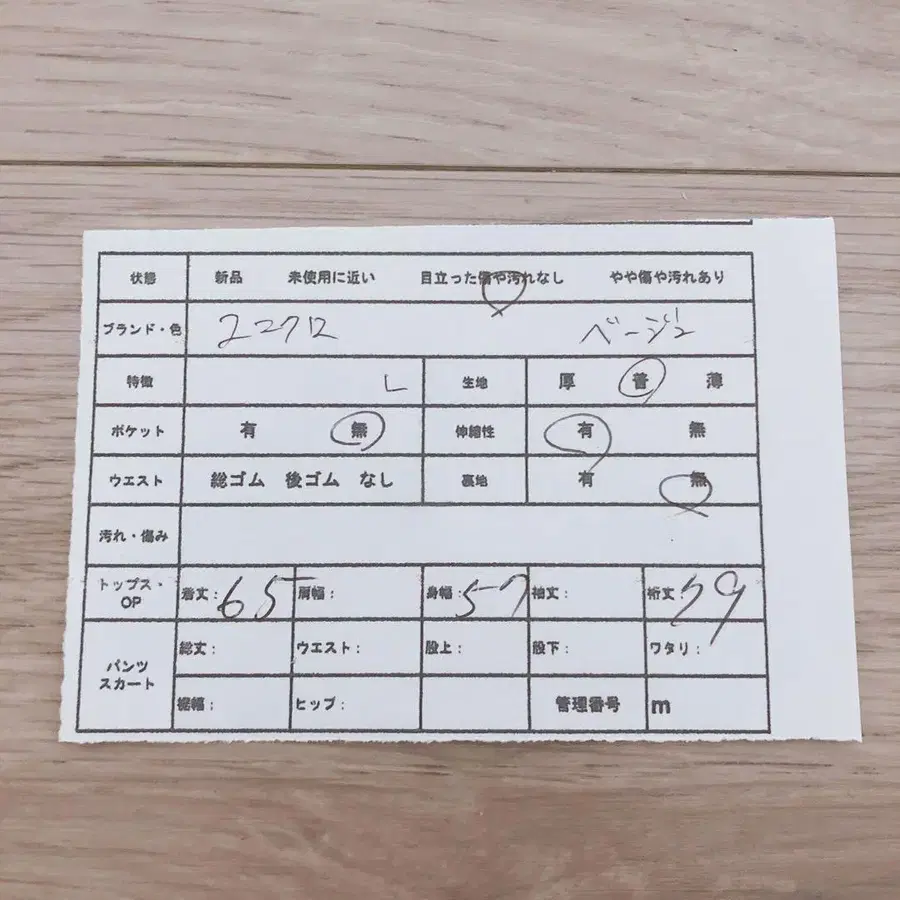 状態 新品 未使用に近い 目立った傷や汚れなし やや傷や汚れあり
ブランド・色 ユニクロ ベージュ
特徴 L 生地 厚 普 薄
ポケット 有 無 伸縮性 有 無
ウエスト 総ゴム 後ゴム なし 裏地 有 無
汚れ・傷み
トップス・OP 着丈:65 肩幅: 身幅:57 袖丈: 裄丈:79
パンツ スカート 総丈: ウエスト: 股上: 股下: ワタリ:
裾幅: ヒップ: 管理番号 m